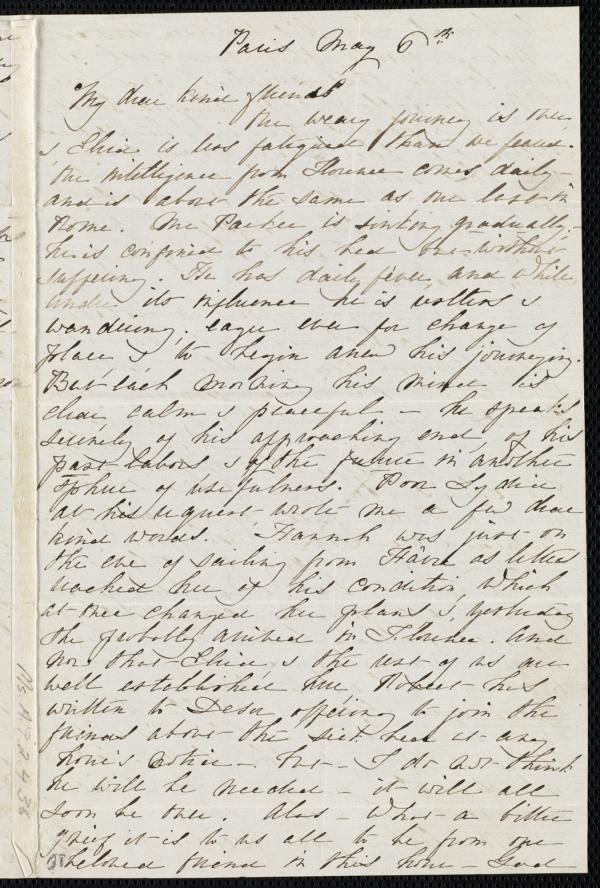 Paris May 6th
My dear kind friends
The weary journey is over
& Eliza is less fatigued than we feared.
The intelligence from Florence comes daily -
and is about the same as our last in
Rome. Mr Parker is sinking gradually -
he is confined to his bed but without
suffering. He has daily fever, and while
under its influence he is restless &
wandering, eager ever for change of
place & to begin anew his journeying.
But each morning his mind is
clear, calm & peaceful - he speaks
serenely of his approaching end, of his
past labors & of the future in another
sphere of usefulness. Poor Lydia
at his request wrote me a few dear
kind words. Hannah was just on
the eve of sailing from Hâvre as letters
reached her of his condition, which
at once changed her plans &, yesterday
she probably arrived in Florence. And
now that Eliza & the rest of us are
well established here Robert has
written to Desor offering to join the
friends about the sick bed at any
hour's notice - but - I do not think
he will be needed - it will all
soon be over. Alas - what a bitter
grief it is to us all to be from our
beloved friend in this hour - God
Ms.A.7.2.4.38
38